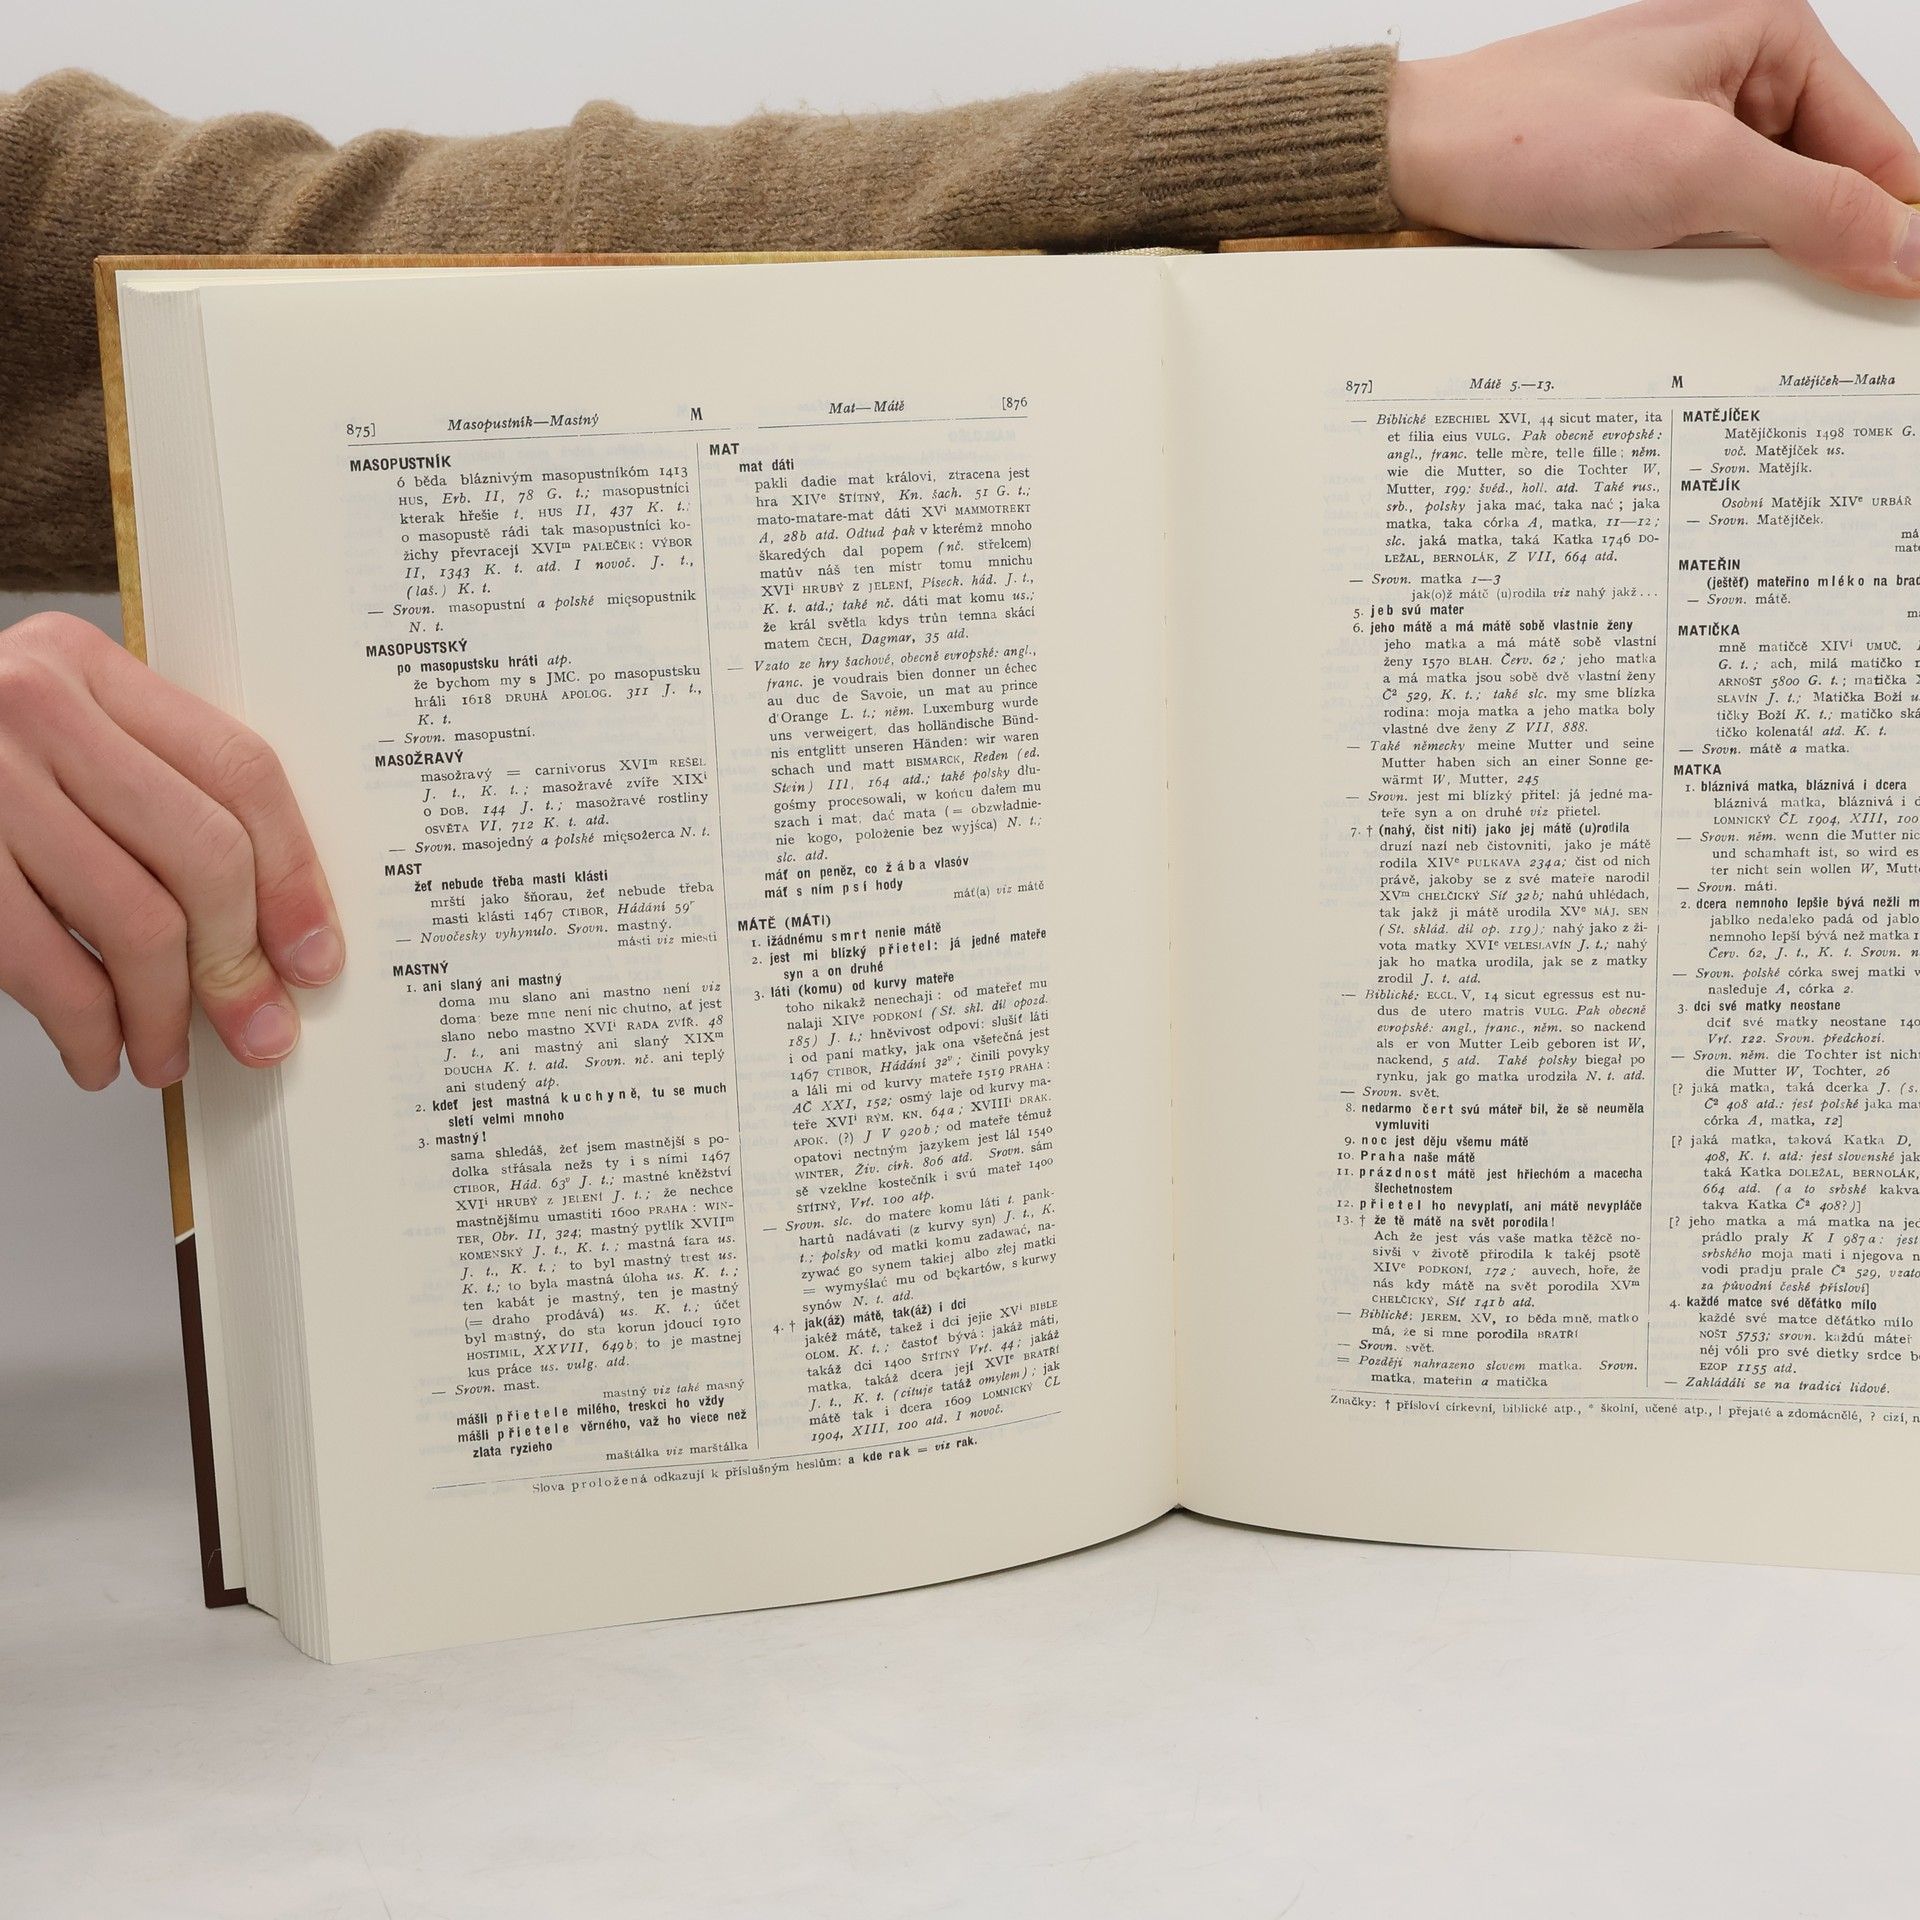 875] Masopustník—Mastný M Mat—Mátě [876
MASOPUSTNÍK
ó běda bláznivým masopustníkóm 1413
HUS, Erb. II, 78 G. t.; masopustníci
kterak hřešie t. HUS II, 437 K. t.;
o masopustě rádi tak masopustníci ko-
žichy převracejí XVIᵐ PALEČEK: VÝBOR
II, 1343 K. t. atd. I novoč. J. t.,
(laš.) K. t.
— Srovn. masopustní a polské mięsopustnik
N. t.
MASOPUSTSKÝ
po masopustsku hráti atp.
že bychom my s JMC. po masopustsku
hráli 1618 DRUHÁ APOLOG. 311 J. t.,
K. t.
— Srovn. masopustní.
MASOŽRAVÝ
masožravý = carnivorus XVIᵐ REŠEL
J. t., K. t.; masožravé zvíře XIXⁱ
O DOB. 144 J. t.; masožravé rostliny
OSVĚTA VI, 712 K. t. atd.
— Srovn. masojedný a polské mięsożerca N. t.
MAST
žeť nebude třeba mastí klásti
mrští jako šňorau, žeť nebude třeba
masti klásti 1467 CTIBOR, Hádání 59ʳ
— Novočesky vyhynulo. Srovn. mastný.
másti viz miesti
MASTNÝ
1. ani slaný ani mastný
doma mu slano ani mastno není viz
doma; beze mne není nic chutno, ať jest
slano nebo mastno XVIⁱ RADA ZVÍŘ. 48
J. t., ani mastný ani slaný XIXᵐ
DOUCHA K. t. atd. Srovn. nč. ani teplý
ani studený atp.
2. kdeť jest mastná kuchyně, tu se much
sletí velmi mnoho
3. mastný!
sama shledáš, žeť jsem mastnější s po-
dolka střásala nežs ty i s ními 1467
CTIBOR, Hád. 63ᵛ J. t.; mastné kněžství
XVIⁱ HRUBÝ Z JELENÍ J. t.; že nechce
mastnějšímu umastiti 1600 PRAHA: WIN-
TER, Obr. II, 324; mastný pytlík XVIIᵐ
KOMENSKÝ J. t., K. t.; mastná fara us.
J. t., K. t.; to byl mastný trest us.
K. t.; to byla mastná úloha us. K. t.;
ten kabát je mastný, ten je mastný
(= draho prodává) us. K. t.; účet
byl mastný, do sta korun jdoucí 1910
HOSTIMIL, XXVII, 649b; to je mastnej
kus práce us. vulg. atd.
— Srovn. mast.
mastný viz také masný
mášli přietele milého, treskci ho vždy
mášli přietele věrného, važ ho viece než
zlata ryzieho
maštálka viz marštálka
MAT
mat dáti
pakli dadie mat královi, ztracena jest
hra XIVᵉ ŠTÍTNÝ, Kn. šach. 51 G. t.;
mato-matare-mat dáti XVⁱ MAMMOTREKT
A, 28b atd. Odtud pak v kterémž mnoho
škaredých dal popem (nč. střelcem)
matův náš ten mistr tomu mnichu
XVIⁱ HRUBÝ Z JELENÍ, Píseck. hád. J. t.,
K. t. atd.; také nč. dáti mat komu us.;
že král světla kdys trůn temna skácí
matem ČECH, Dagmar, 35 atd.
— Vzato ze hry šachové, obecně evropské: angl.,
franc. je voudrais bien donner un échec
au duc de Savoie, un mat au prince
d'Orange L. t.; něm. Luxemburg wurde
uns verweigert, das holländische Bünd-
nis entglitt unseren Händen: wir waren
schach und matt BISMARCK, Reden (ed.
Stein) III, 164 atd.; také polsky dłu-
gośmy procesowali, w końcu dałem mu
szach i mat; dać mata (= obzwładnie-
nie kogo, położenie bez wyjśca) N. t.;
slc. atd.
máť on peněz, co žába vlasóv
máť s ním psí hody
máť(a) viz mátě
MÁTĚ (MÁTI)
1. ižádnému smrt nenie mátě
2. jest mi blízký přietel: já jedné mateře
syn a on druhé
3. láti (komu) od kurvy mateře
toho nikakž nenechaji: od mateřeť mu
nalaji XIVᵉ PODKONÍ (St. skl. díl opozd.
185) J. t.; hněvivost odpoví: slušíť láti
i od paní matky, jak ona všetečná jest
1467 CTIBOR, Hádání 32ᵛ; činili povyky
a láli mi od kurvy mateře 1519 PRAHA:
AČ XXI, 152; osmý laje od kurvy ma-
teře XVIⁱ RÝM. KN. 64a; XVIIIⁱ DRAK.
APOK. (?) J V 920b; od mateře témuž
opatovi nectným jazykem jest lál 1540
WINTER, Živ. círk. 806 atd. Srovn. sám
sě vzeklne kostečník i svú mateř 1400
ŠTÍTNÝ, Vrt. 100 atp.
— Srovn. slc. do matere komu láti t. pank-
hartů nadávati (z kurvy syn) J. t., K.
t.; polsky od matki komu zadawać, na-
zywać go synem takiej albo złej matki
= wymyślać mu od bękartów, s kurwy
synów N. t. atd.
4. † jak(áž) mátě, tak(áž) i dci
jakéž mátě, takež i dci jejie XVⁱ BIBLE
OLOM. K. t.; častoť bývá: jakáž máti,
takáž dci 1400 ŠTÍTNÝ Vrt. 44; jakáž
matka, takáž dcera její XVIᵉ BRATŘÍ
J. t., K. t. (cituje tatáž omylem); jak
mátě tak i dcera 1609 LOMNICKÝ ČL
1904, XIII, 100 atd. I novoč.
Slova proložená odkazují k příslušným heslům: a kde rak = viz rak.
877] Mátě 5.—13. M Matějíček—Matka
— Biblické EZECHIEL XVI, 44 sicut mater, ita
et filia eius VULG. Pak obecně evropské:
angl., franc. telle mère, telle fille; něm.
wie die Mutter, so die Tochter W,
Mutter, 199; švéd., holl. atd. Také rus.,
srb., polsky jaka mać, taka nać; jaka
matka, taka córka A, matka, 11—12;
slc. jaká matka, taká Katka 1746 DO-
LEŽAL, BERNOLÁK, Z VII, 664 atd.
— Srovn. matka 1—3
jak(o)ž mátě (u)rodila viz nahý jakž...
5. jeb svú mater
6. jeho mátě a má mátě sobě vlastnie ženy
jeho matka a má mátě sobě vlastní
ženy 1570 BLAH. Červ. 62; jeho matka
a má matka jsou sobě dvě vlastní ženy
Č² 529, K. t.; také slc. my sme blízka
rodina: moja matka a jeho matka boly
vlastné dve ženy Z VII, 888.
— Také německy meine Mutter und seine
Mutter haben sich an einer Sonne ge-
wärmt W, Mutter, 245
— Srovn. jest mi blízký přítel: já jedné ma-
teře syn a on druhé viz přietel.
7. † (nahý, čist nití) jako jej mátě (u)rodila
druzí nazí neb čistovniti, jako je mátě
rodila XIVᵉ PULKAVA 234a; čist od nich
právě, jakoby se z své mateře narodil
XVᵐ CHELČICKÝ Síť 32b; nahú uhlédach,
tak jakž ji mátě urodila XVᵉ MÁJ. SEN
(St. sklád. díl op. 119); nahý jako z ži-
vota matky XVIᵉ VELESLAVÍN J. t.; nahý
jak ho matka urodila, jak se z matky
zrodil J. t. atd.
— Biblické: ECCL. V, 14 sicut egressus est nu-
dus de utero matris VULG. Pak obecně
evropské: angl., franc., něm. so nackend
als er von Mutter Leib geboren ist W,
nackend, 5 atd. Také polsky biegał po
rynku, jak go matka urodzila N. t. atd.
— Srovn. svět.
8. nedarmo čert svú máteř bil, že sě neuměla
vymluviti
9. noc jest děju všemu mátě
10. Praha naše mátě
11. prázdnost mátě jest hřiechóm a macecha
šlechetnostem
12. přietel ho nevyplatí, ani mátě nevypláče
13. † že tě mátě na svět porodila!
Ach že jest vás vaše matka těžcě no-
sivši v životě přirodila k takéj psotě
XIVᵉ PODKONÍ, 172; auvech, hoře, že
nás kdy mátě na svět porodila XVᵐ
CHELČICKÝ, Síť 141b atd.
— Biblické: JEREM. XV, 10 běda mně, matko
má, že si mne porodila BRATŘÍ
— Srovn. svět.
= Později nahrazeno slovem matka. Srovn.
matka, mateřin a matička
MATĚJÍČEK
Matějíčkonis 1498 TOMEK G.
voč. Matějíček us.
— Srovn. Matějík.
MATĚJÍK
Osobní Matějík XIVᵉ URBÁŘ
— Srovn. Matějíček.
má
mate
MATEŘIN
(ještěť) mateřino mléko na brad
— Srovn. mátě.
MATIČKA
mně matičcě XIVⁱ UMUČ.
G. t.; ach, milá matičko
ARNOŠT 5800 G. t.; matička
SLAVÍN J. t.; Matička Boží
tičky Boží K. t.; matičko ská
tičko kolenatá! atd. K. t.
— Srovn. mátě a matka.
MATKA
1. bláznivá matka, bláznivá i dcera
bláznivá matka, bláznivá i d
LOMNICKÝ ČL 1904, XIII, 100
— Srovn. něm. wenn die Mutter nic
und schamhaft ist, so wird es
ter nicht sein wollen W, Mutt
— Srovn. máti.
2. dcera nemnoho lepšie bývá nežli m
jablko nedaleko padá od jablo
nemnoho lepší bývá než matka 1
Červ. 62, J. t., K. t. Srovn. n
— Srovn. polské córka swej matki
nasleduje A, córka 2.
3. dci své matky neostane
dciť své matky neostane 140
Vrt. 122. Srovn. předchozí.
— Srovn. něm. die Tochter ist nich
die Mutter W, Tochter, 26
[? jaká matka, taká dcerka J. (s.
Č² 408 atd.: jest polské jaka ma
córka A, matka, 12]
[? jaká matka, taková Katka D,
408, K. t. atd: jest slovenské jak
taká Katka DOLEŽAL, BERNOLÁK,
664 atd. (a to srbské kakva
takva Katka Č² 408?)]
[? jeho matka a má matka na jed
prádlo praly K I 987a: jest
srbského moja mati i njegova n
vodi pradju prale Č² 529, vzato
za původní české přísloví]
4. každé matce své děťátko milo
každé své matce děťátko milo
NOŠT 5753; srovn. každú máteř
néj vóli pro své dietky srdce b
EZOP 1155 atd.
— Zakládáli se na tradici lidové.
Značky: † přísloví církevní, biblické atp., * školní, učené atp., ! přejaté a zdomácnělé, ? cizí, n